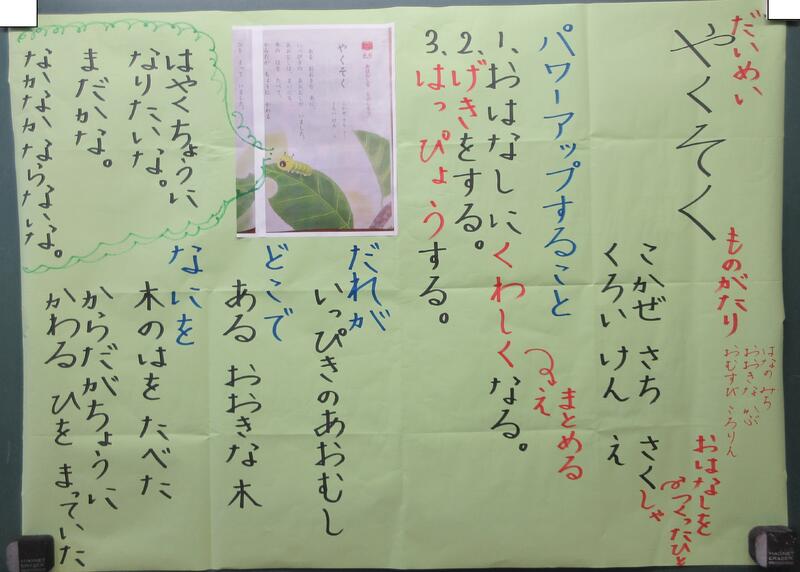 だいめい
やくそく
ものがたり
はなの みち
おおきな かぶ
おむすび ころりん
こかぜ さち さく
くろい けん え
しゃ
おはなしを
つくったひと
パワーアップすること
1.おはなしに くわしく なる。
まとめる
2.げきをする。
3.はっぴょうする。
やくそく
だれが
いっぴきのあおむし
どこで
ある おおきな 木
なにを
木のはを たべた
からだがちょうに
かわる ひを まっていた
はやくちょうに
なりたいな。
まだかな。
なかなかならないな。
MAGNET
ERASER
MAGNET
ERASER